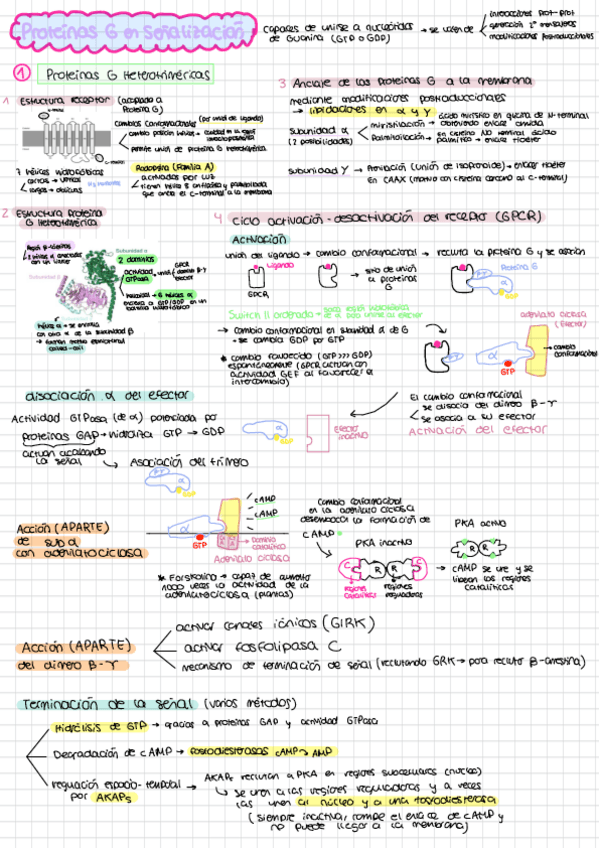 Proteínas G en Señalización
capaces de unirse a nucleótidos
de Guanina (GTP o GDP)
→ se valen de
interacciones prot-prot
generación 2º mensajeros
modificaciones postraduccionales
1 Proteínas G Heterotriméricas
1 Estructura receptor (acoplado a
Proteína G)
cambios conformacionales (por unión de ligando)
permite unión de proteína G heterotrimérica
7 hélices hidrofóbicas
Rodopsina (Familia A)
activadas por luz
que ancla el C-terminal a la membrana
3 Anclaje de las proteínas G a la membrana
mediante modificaciones postraduccionales
→ lipidaciones en α y γ
Subunidad α
(2 posibilidades)
miristoilación → ácido mirístico en glicina de N-terminal
obteniendo enlace amida
Palmitoilación → en cisteína NO terminal ácido
palmítico → enlace tioéster
Subunidad γ → Prenilación (unión de isoprenoide) → enlace tioéter
en CAAX (motivo con cisteína cercano al C-terminal)
2 Estructura proteína
G Heterotrimérica
Subunidad α
2 dominios
actividad
GTPasa
Subunidad β
4 Ciclo activación-desactivación del receptor (GPCR)
Activación
unión del ligando → cambio conformacional → recluta la proteína G y se asocian
Ligando
GPCR
sitio de unión
a proteínas
G
Proteína G
Switch II ordenado →
→ cambio conformacional en subunidad α de G
→ se cambia GDP por GTP
* cambio favorecido (GTP >>> GDP)
espontáneamente (GPCR actúan con
actividad GEF al favorecer el
intercambio)
adenilato ciclasa
(Efector)
→ cambio
conformacional
GTP
disociación α del efector
Actividad GTPasa (de α) potenciada por
proteínas GAP → hidroliza GTP → GDP
actúan acabando
la señal
Asociación del trímero
α
GDP
Efector
inactivo
El cambio conformacional
→ se disocia del dímero β-γ
→ se asocia a su efector
Activación del efector
Acción (APARTE)
de sub α
con adenilato ciclasa
α
GTP
cAMP
cAMP
Dominio
catalítico
Adenilato ciclasa
* Forskolina → capaz de aumentar
1000 veces la actividad de la
adenilato ciclasa (plantas)
Cambio conformacional
en la adenilato ciclasa
desemboca la formación de
cAMP
PKA inactivo
C R R C
regiones
catalíticas
regiones
reguladoras
PKA activo
R R
→ cAMP se une y se
liberan las regiones
catalíticas
Acción (APARTE)
del dímero β-γ
activar canales iónicos (GIRK)
activar fosfolipasa C
mecanismo de terminación de señal (reclutando GRK → para reclutar β-arrestina)
Terminación de la señal (varios métodos)
Hidrólisis de GTP → gracias a proteínas GAP y actividad GTPasa
Degradación de cAMP → fosfodiesterasas cAMP → AMP
regulación espacio-temporal
por AKAPs
→ AKAPs reclutan a PKA en regiones subcelulares (núcleo)
→ se unen a las regiones reguladoras y a veces
las unen al núcleo y a una fosfodiesterasa
(siempre inactiva, rompe el enlace de cAMP y
no puede llegar a la membrana)